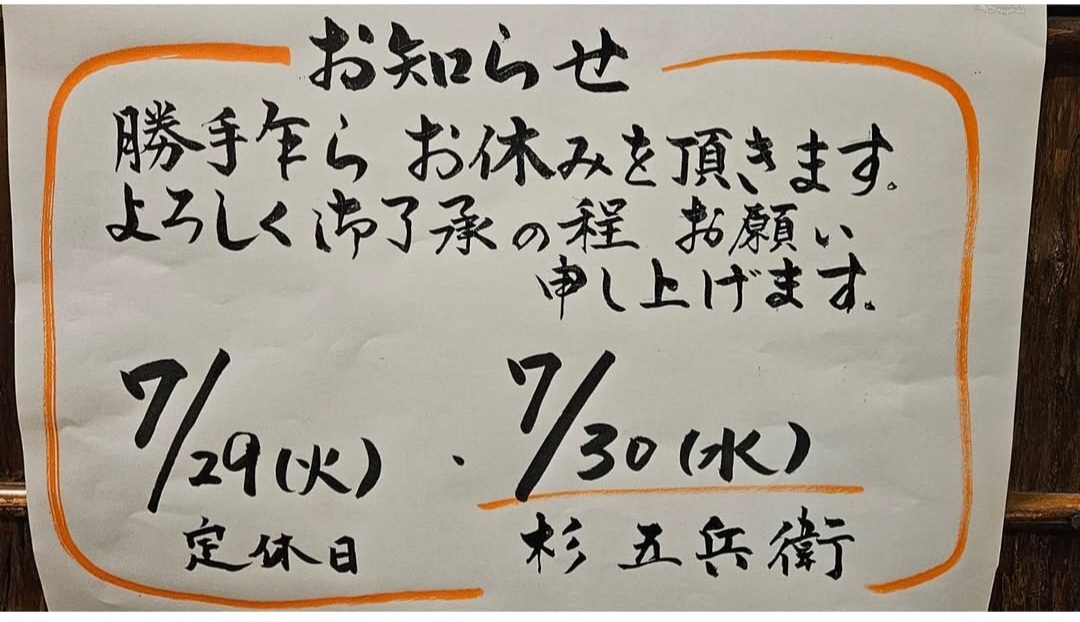 お知らせ
勝手乍ら お休みを頂きます。
よろしく御了承の程 お願い
申し上げます。
7/29(火) ・ 7/30(水)
定休日 杉 五兵衛